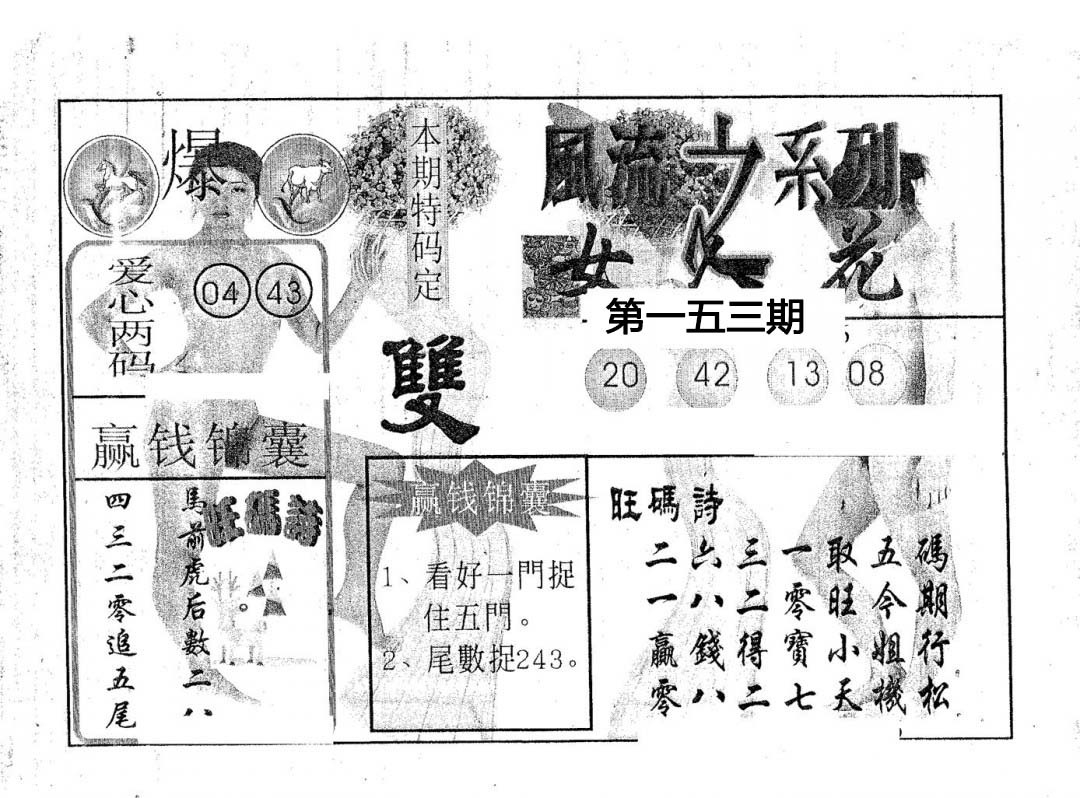 爆
爱心两码
04 43
赢钱锦囊
旺碼詩
馬前虎后數二八
四三二零追五尾
本期特码定
雙
風流之系列
女人花
第一五三期
20 42 13 08
赢钱锦囊
1、看好一門捉
住五門。
2、尾數捉243。
旺碼詩
碼期行松
五今姐機
取旺小天
一零寶七
三二得二
六八錢八
二一贏零